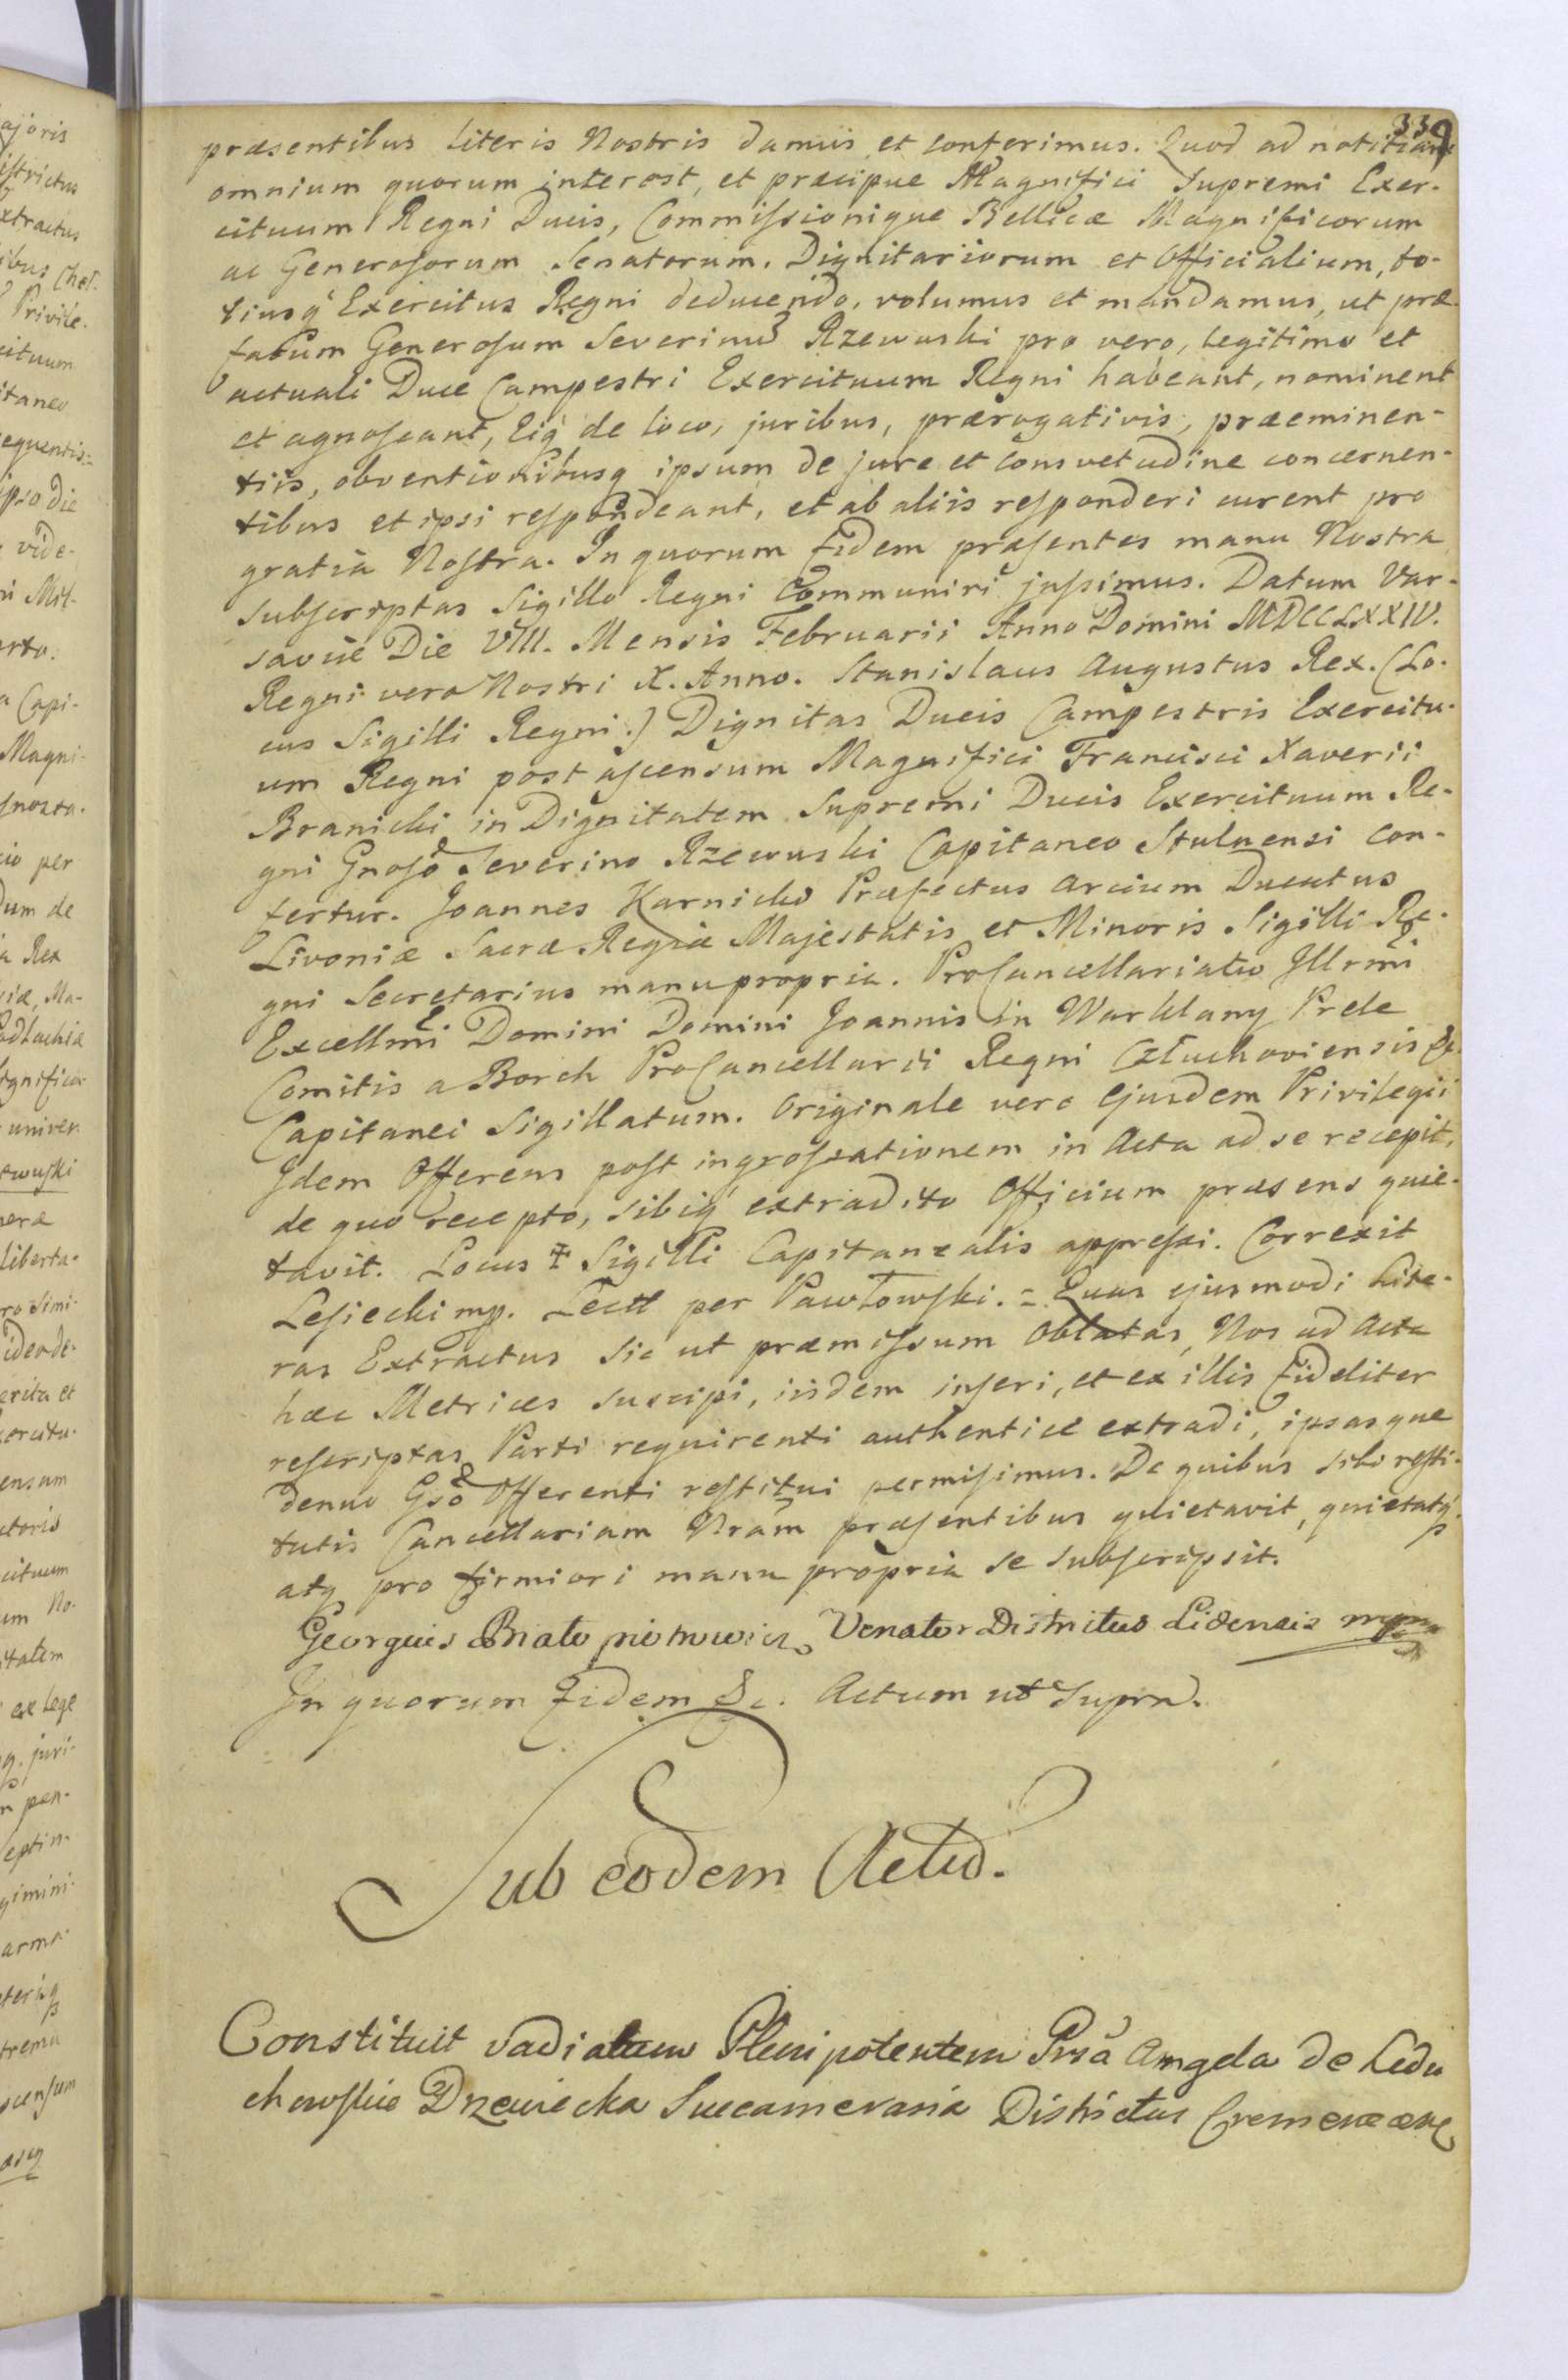 339
præsentibus Literis Nostris damus et conferimus. Quod ad notitiam
omnium quorum interest, et præcipue Magnifici Supremi Exer-
cituum Regni Ducis, Commissionique Bellicæ Magnificorum
ac Generosorum Senatorum. Dignitariorum et Officialium, to-
tiusq Exercitus Regni deducendo, volumus et mandamus, ut præ-
fatum Generosum Severinu Rzewuski pro vero, legitimo et
actuali Duce Campestri Exercituum Regni habeant, nominent
et agnoscant, Eiq de loco, juribus, prærogativis, præeminen-
tiis, obventionibusq ipsum de jure et consvetudine concernen-
tibus et ipsi respondeant, et ab aliis responderi curent pro
gratia Nostra. In quorum fidem præsentes manu Nostra
subscriptas Sigillo Regni Communiri jussimus. Datum Var-
saviæ Die VIII. Mensis Februarii Anno Domini MDCCLXXIV.
Regni vero Nostri X. Anno. Stanislaus Augustus Rex. (Lo-
cus Sigilli Regni.) Dignitas Ducis Campestris Exercitu-
um Regni post ascensum Magnifici Francisci Xaverii
Branicki in Dignitatem Supremi Ducis Exercituum Re-
gni Gnoso Severino Rzewuski Capitaneo Stulnensi con-
fertur. Joannes Karnicki Præfectus Arcium Ducatus
Livoniæ Sacræ Regiæ Majestatis et Minoris Sigilli Re-
gni Secretarius manupropria. ProCancellariatu Illrmi
Excellmi Domini Domini Joannis in Warklany Prele
Comitis a Borch ProCancellarii Regni Człuchoviensis &c.
Capitanei Sigillatum. Originale vero Ejusdem Privilegii
Idem Offerens post ingrossationem in Acta ad se recepit,
de quo recepto, sibiq extradito Officium præsens quie-
tavit. Locus Sigilli Capitanealis appressi. Correxit
Lesiecki mp. Lectt per Pawłowski. = Quas ejusmodi Lite-
ras Extractus sic ut præmissum Oblatas, Nos ad Acta
hæc Metrices suscipi, iisdem inseri, et ex illis fideliter
rescriptas Parti requirenti authentice extradi, ipsasque
denuo Gso Offerenti restitui permisimus. De quibus sibi resti-
tutis Cancellariam Nram præsentibus quietavit, quietatq
atq pro firmiori manu propria se subscripsit.
Georgius Białopiotrowicz Venator Districtus Lidensis mpp
In quorum Fidem &c. Actum ut Supra.
Sub eodem Actu.
Constituit vadiatum Plenipotentem Prsa Angela de Ledu
chowskie Drzewiecka Succameraria Districtus